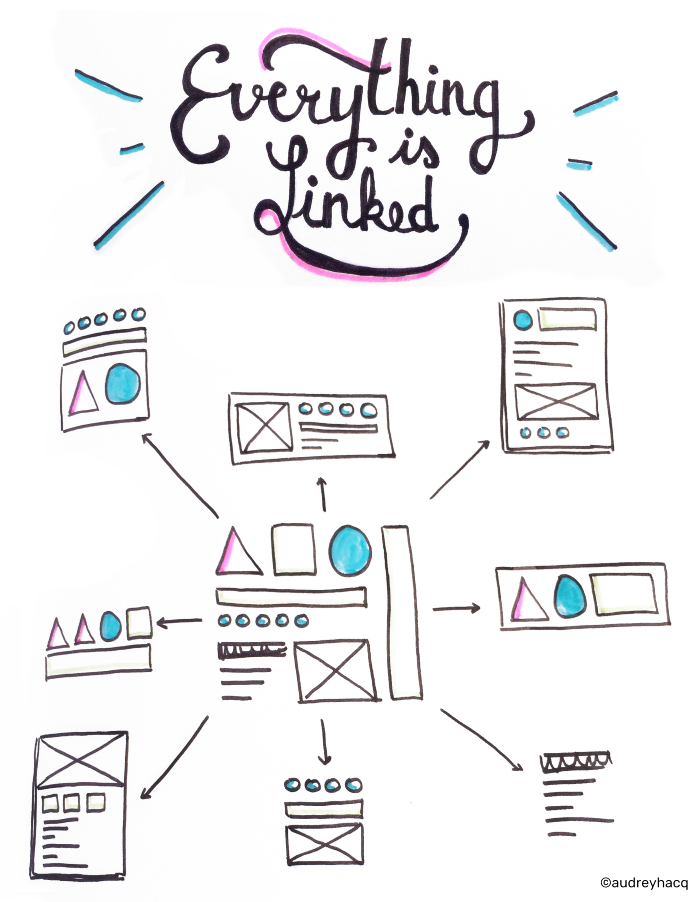 Everything
is
Linked
©audreyhacq